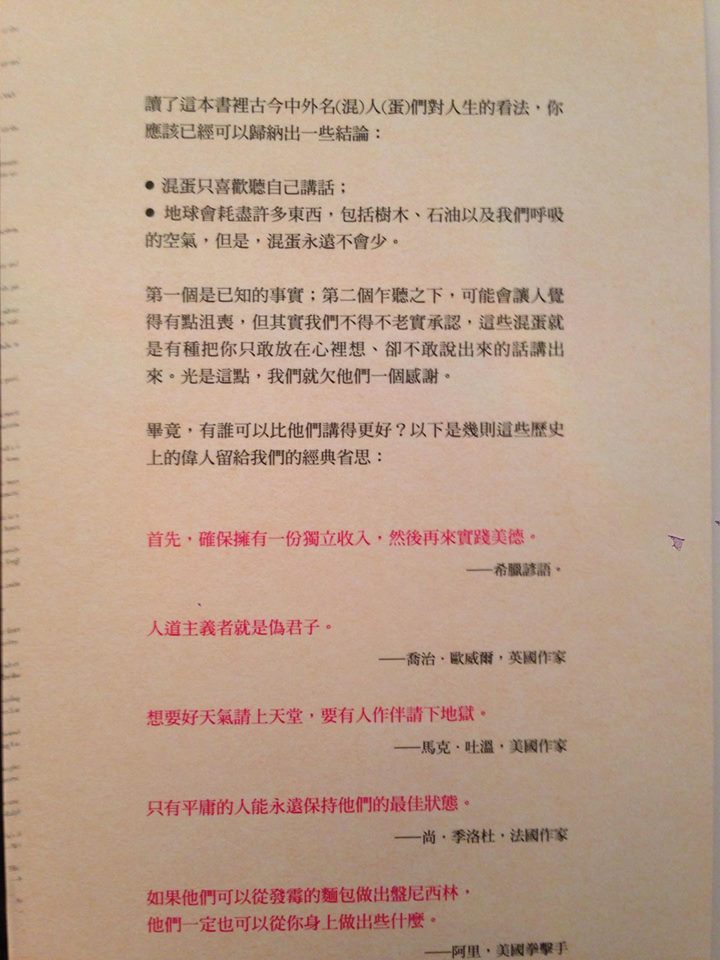 讀了這本書裡古今中外名(混)人(蛋)們對人生的看法，你
應該已經可以歸納出一些結論：
● 混蛋只喜歡聽自己講話；
● 地球會耗盡許多東西，包括樹木、石油以及我們呼吸
的空氣，但是，混蛋永遠不會少。
第一個是已知的事實；第二個乍聽之下，可能會讓人覺
得有點沮喪，但其實我們不得不老實承認，這些混蛋就
是有種把你只敢放在心裡想、卻不敢說出來的話講出
來。光是這點，我們就欠他們一個感謝。
畢竟，有誰可以比他們講得更好？以下是幾則這些歷史
上的偉人留給我們的經典省思：
首先，確保擁有一份獨立收入，然後再來實踐美德。
──希臘諺語。
人道主義者就是偽君子。
──喬治．歐威爾，英國作家
想要好天氣請上天堂，要有人作伴請下地獄。
──馬克．吐溫，美國作家
只有平庸的人能永遠保持他們的最佳狀態。
──尚．季洛杜，法國作家
如果他們可以從發霉的麵包做出盤尼西林，
他們一定也可以從你身上做出些什麼。
──阿里，美國拳擊手